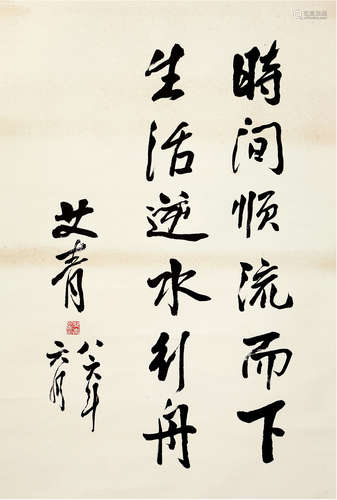 時间顺流而下
生活逆水行舟
艾青
八六年
六月